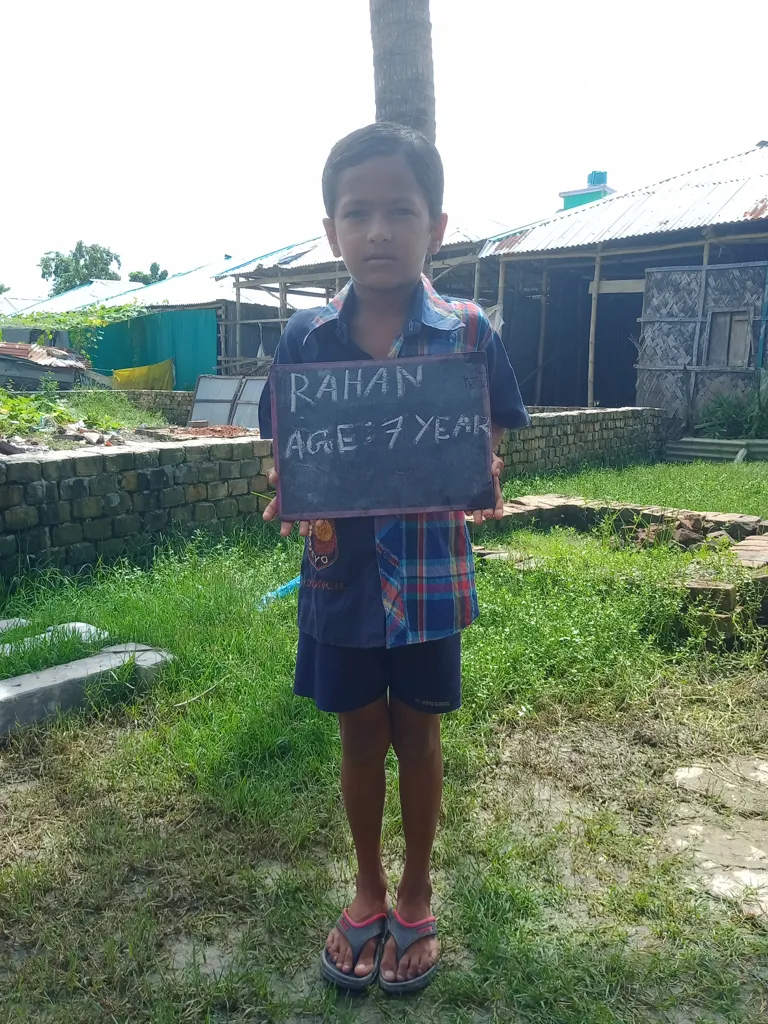 RAHAN
AGE: 7 YEAR